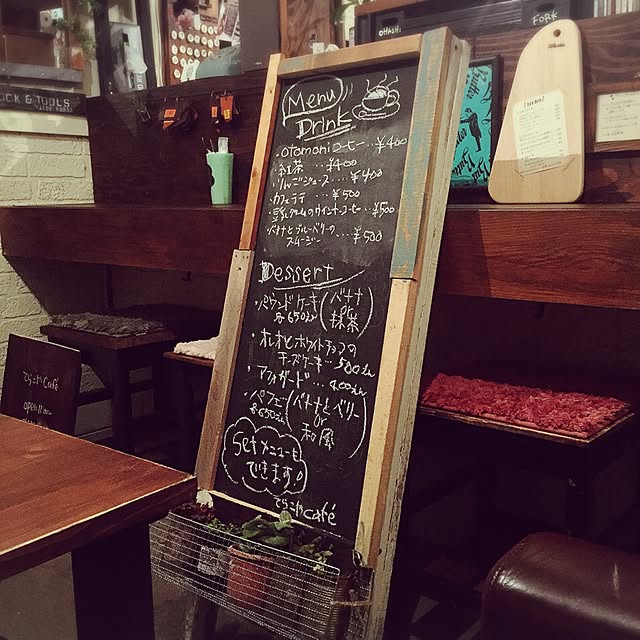 Menu
Drink
・otomoniコーヒー…¥400
・紅茶 …¥400
・りんごジュース…¥400
・カフェラテ …¥500
・豆乳クリームのウインナーコーヒー…¥500
・バナナとブルーベリーの
スムージー …¥500
Dessert
・パウンドケーキ
各650えん
バナナ
or
抹茶
・オレオとホワイトチョコの
チーズケーキ…500えん
・アフォガード…400えん
・パフェ
各650えん
バナナとベリー
or
和風
Setメニューも
できます。
てらこやcafé
てらこやCafé
open 11:00
OCK & TOOLS
OHASHI
FORK